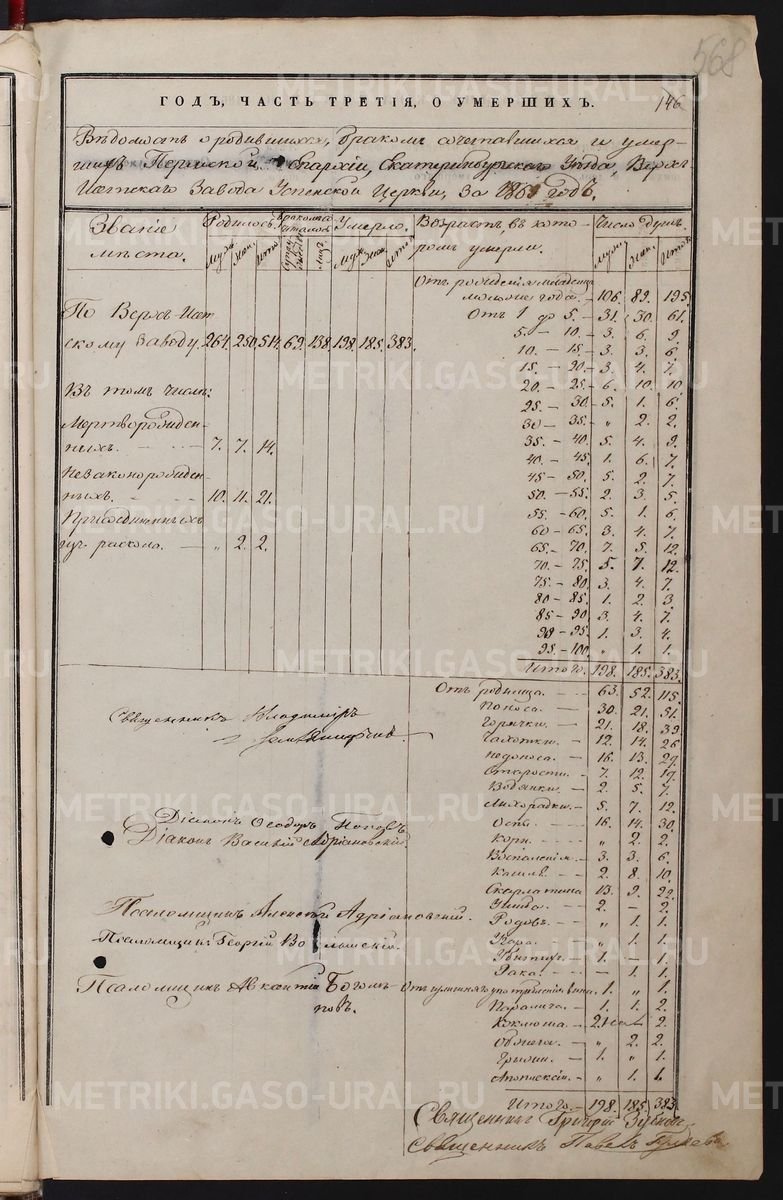 568
146
ГОДЪ, ЧАСТЬ ТРЕТІЯ, О УМЕРШИХЪ.
Вѣдомость о родившихся, бракомъ сочетавшихся и умер-
шихъ Пермской Епархіи, Екатеринбургскаго Уѣзда, Верхъ-
Исетскаго Завода Успенской Церкви, за годъ.
Званіе мѣста. Родилось. Умерло. Возрастъ въ кото- Число душъ.
ромъ умерли.
Муж. Жен. Итого Лицъ Муж. Жен. Итого Муж. Жен. Итого
Отъ рожденія младенц.
моложе года. 106. 89. 195.
По Верхъ-Исет- Отъ 1 до 5. 31. 30. 61.
скому Заводу. 264. 250. 514. 69. 138. 198. 185. 383. 5. – 10. 3. 6. 9.
10. – 15. 3. 3. 6.
15. – 20. 3. 4. 7.
Въ томъ числѣ: 20. – 25. 6. 10. 10
25. – 30. 5. 1. 6.
Мертворожден- 30 – 35. " 2. 2.
ныхъ. 7. 7. 14. 35. – 40. 5. 4. 9.
40. – 45. 1. 6. 7.
Незаконорожден- 45 – 50. 5. 2. 7.
ныхъ. 10. 11. 21. 50. – 55. 2. 3. 5.
Присоединенныхъ 55. – 60. 5. 1. 6.
изъ раскола. " 2. 2. 60 – 65. 3. 4. 7.
65. – 70. 7. 5. 12.
70. – 75. 5. 7. 12.
75. – 80. 3. 4. 7.
80 – 85. 1. 2. 3.
85 – 90. 3. 4. 7.
90 – 95. 1. 3. 4.
95. – 100. " 1. 1.
Итого. 198. 185. 383.
Отъ родимца. 63. 52. 115.
Священникъ Владиміръ Поноса. 30. 21. 51.
Горячки. 21. 18. 39
Чахотки. 12. 14. 26
Недоноса. 16. 13. 29.
Старости. 7. 12. 19.
Водянки. 2. 5. 7.
Лихорадки. 5. 7. 12.
Діаконъ Ѳеодоръ Поповъ Оспы. 16. 14. 30.
Діаконъ Василій Адріановскій. Кори. " 2. 2.
Воспаленія. 3. 3. 6.
Кашля. 2. 8. 10.
Скарлатина 13. 9. 22.
2. – 2.
Псаломщикъ Алексѣй Адріановскій. Родовъ. " 1. 1.
Псаломщикъ Георгій " 1. 1.
1. – 1.
Рака. – 1. 1.
Псаломщикъ Отъ излишняго употребленія вина. 1. " 1.
Паралича. 1. 1. 2.
Коклюша. 2.
Обжога. " 2. 2.
Грыжи. 1. " 1.
" 1. 1.
Итого. 198. 185. 383.
Священникъ Григорій
Священникъ Павелъ
METRIKI.GASO-URAL.RU